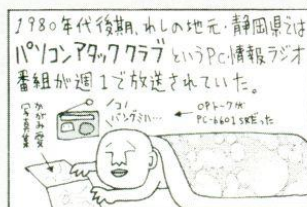 1980年代後期、わしの地元・静岡県では
パソコンアタッククラブというPC情報ラジオ
番組が週1で放送されていた。
コノ
バングミハ…
←OPトークが
PC-6601SRだった